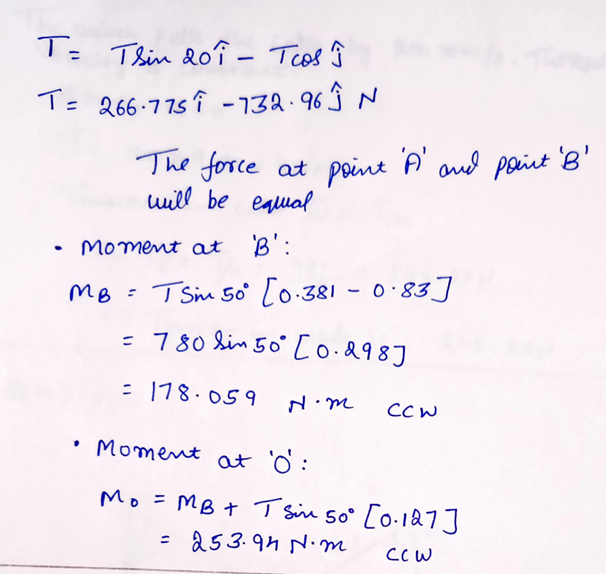 T = T sin 20 î - T cos ĵ
T = 266.775 î - 732.96 ĵ N
The force at point 'A' and point 'B'
will be equal
• Moment at 'B':
MB = T Sin 50° [0.381 - 0.83]
= 780 Sin 50° [0.298]
= 178.059 N.m CCW
• Moment at 'O':
Mo = MB + T Sin 50° [0.127]
= 253.94 N.m CCW